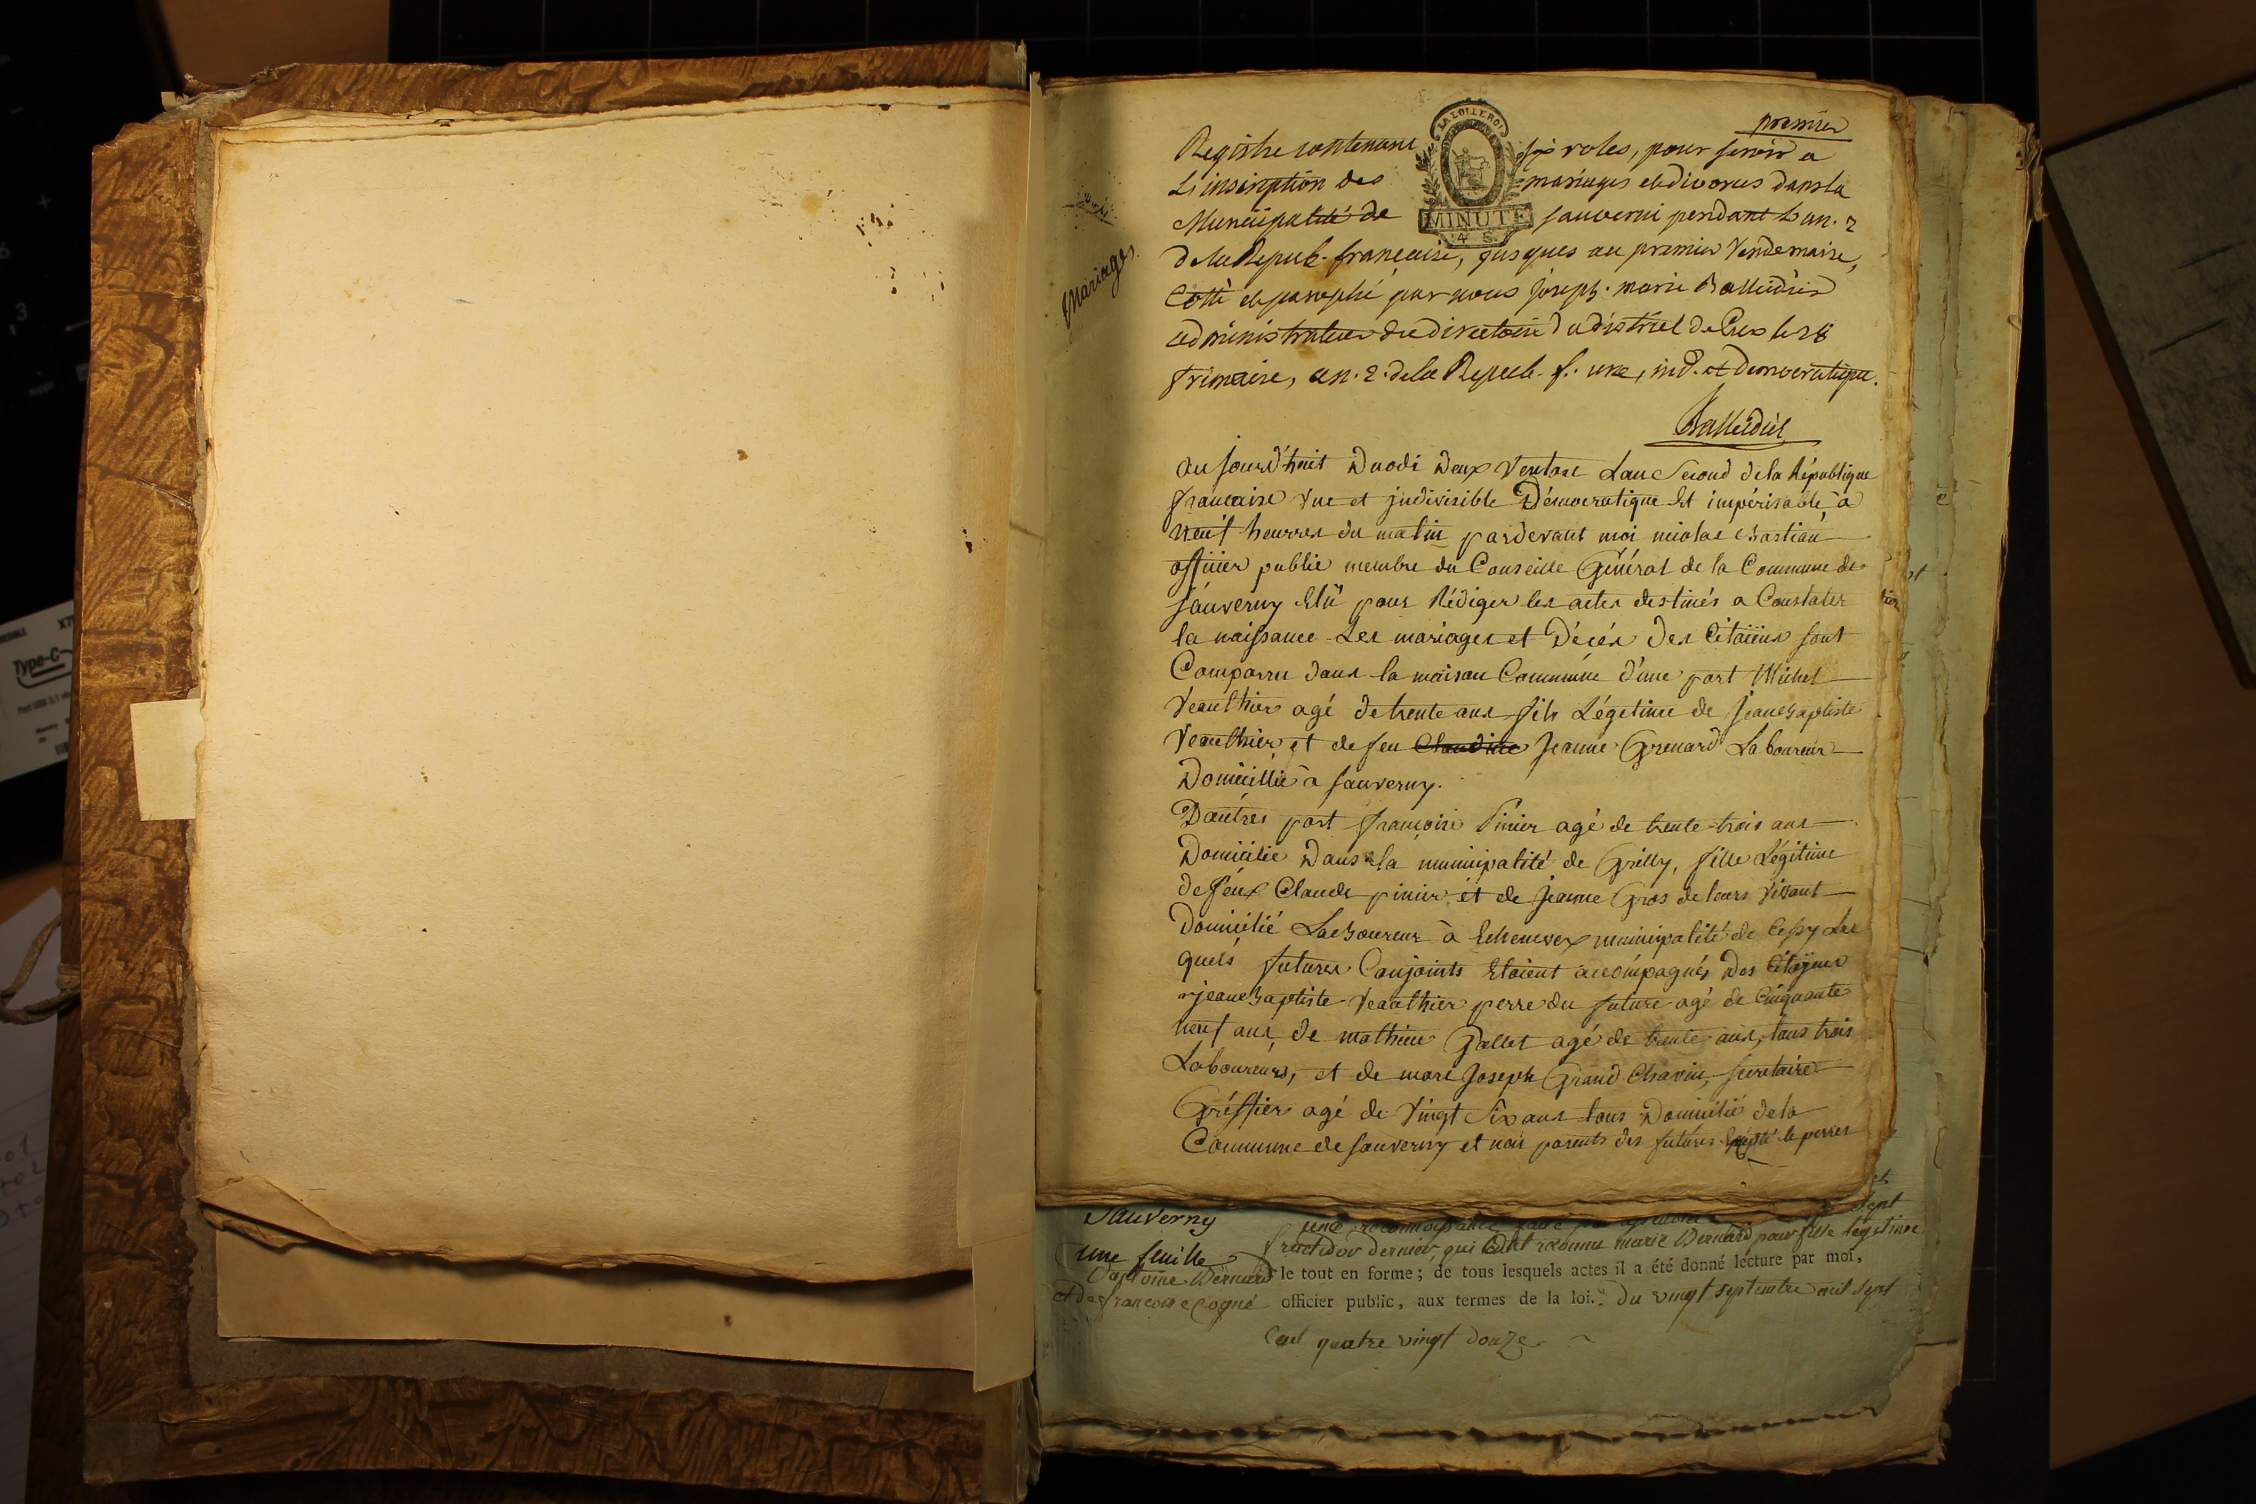 premier
Registre contenant six roles, pour servir a
L'inscription des mariages et divorces dans la
Municipalité de Sauverni pendant l'an. 2
de la Repub. française, jusques au premier Vendemaire,
Cotté et paraphé par nous Joseph. marie Balleidier
administrateur du directoire du district de Gex le 28
frimaire, an. 2. de la Repub. f. une, ind. et democratique.
Balleidier
LA LOI LE ROI
MINUTE
4 S.
Mariages.
Aujourd'huit Duodi Deux Ventose Lan Second de la République
francaise Vne et jndivisible Démocratique Et impérisable, à
neuf heurres du matin pardevant moi nicolas Bastian
officier public membre du Conseille Général de la Commune de
Sauverny Elû pour Rédiger les actes destinés a Constater
la naissance Les mariages et Décés Des Citoiiens sont
Comparru dans la maison Commune d'une part Michel
Veaulthier agé de trente ans fils Légetime de Jean Baptiste
Veaulthier et de feu Claudine Jeanne Grenard Laboureur
Domicillié à Sauverny.
Dautres part françoise Pinier agé de trente-trois ans
Domicilié Dans la municipalité de Grilly, fille Légitime
de feux Claude pinier et de Jeanne Gros de leurs vivant
Domicilié Laboureur à Echenevex municipalité de Cessy Les
quels futures Conjoints Etoient accompagnés Des Citoyens
jean Baptiste Veaulthier perre du future agé de Cinquante
neuf ans, de mathieu Gallet agé de trente ans, tous trois
Laboureurs, et de marc Joseph Grand Chavin, secretaire
Gréffier agé de Vingt Six ans tous Domicilié de la
Commune de Sauverny et non parents des futures Excépté le perres
et
sept
Sauverny
une feuille
D'antoine Bernard
et de francoise Cogné
une reconnoissance faite par
fructidor dernier, qui ont reconnu marie Bernard pour fille légitime
le tout en forme; de tous lesquels actes il a été donné lecture par moi,
officier public, aux termes de la loi. Du vingt septembre mil sept
Cent quatre vingt douze
Type-C